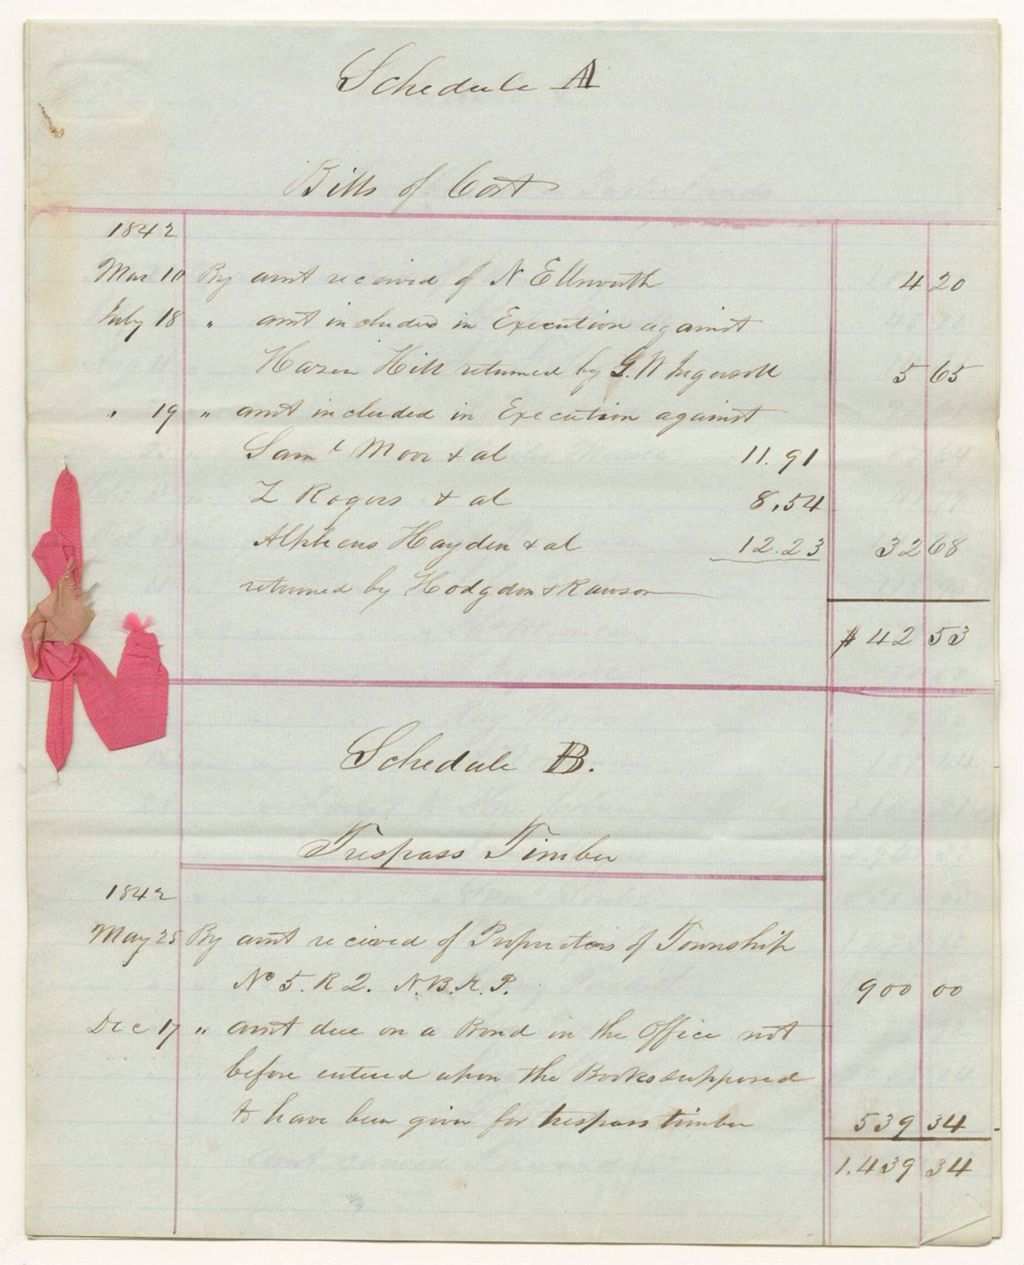 Schedule A
Bills of Cost
1842
Mar 10 By amt received of N Ellsworth 4 20
July 18 " amt included in Execution against
Hazen Hill returned by G. W Ingersoll 5 65
" 19 " amt included in Execution against
Saml Moor & al 11.91
L Rogers & al 8.54
Alpheus Hayden & al 12.23 32 68
returned by Hodgdon & Rawson
$ 42 53
Schedule B.
Trespass Timber
1842
May 25 By amt recieved of Proprietors of Township
No 5. R 2. N.B.K.P. 900 00
Dec 17 " amt due on a Bond in the Office not
before entered upon the Books supposed
to have been given for trespass timber 539 34
1.439 34